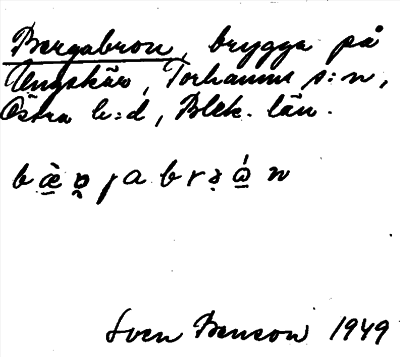 Bergabron, brygga på
Ängskär, Torhamns s:n,
Östra h:d, Blek. län.
Sven Benson 1949